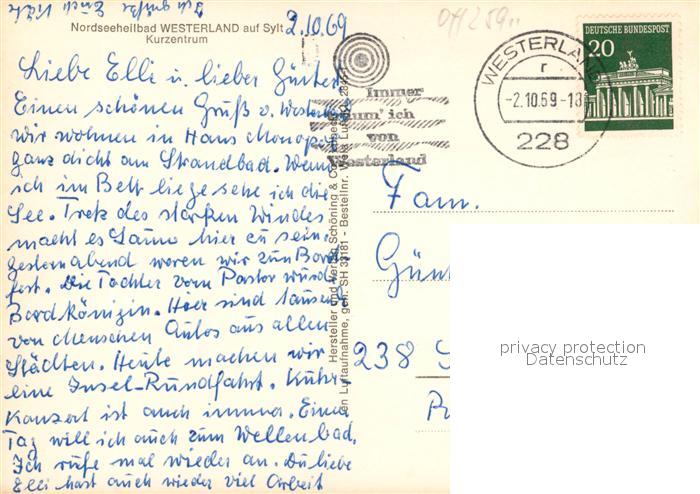 Ich grüße Euch
Nordseeheilbad WESTERLAND auf Sylt
Kurzentrum
2.10.69
Liebe Elli u. lieber Günter!
Einen schönen Gruß v. Westerland
wir wohnen in Haus
ganz dicht am Strandbad. Wenn
ich im Bett liege sehe ich die
See. Trotz des starken Windes
macht es Laune hier zu sein.
gestern abend waren wir zum Bord
fest. Die Tochter vom Pastor wurde
Bordkönigin. Hier sind tausend
von Menschen Autos aus allen
Städten. Heute machen wir
eine Insel-Rundfahrt. Kuhr-
Konzert ist auch immer. Einen
Tag will ich auch zum Wellenbad.
Ich rufe mal wieder an. Du liebe
Elli hast auch wieder viel Arbeit
Hersteller und Verlag Schöning &
Luftaufnahme, gen. SH 33181 - Bestellnr.
Immer
träum' ich
von
Westerland
WESTERLAND
r
-2.10.69-18
228
20
DEUTSCHE BUNDESPOST
Fam.
Günt
238 S
privacy protection
Datenschutz